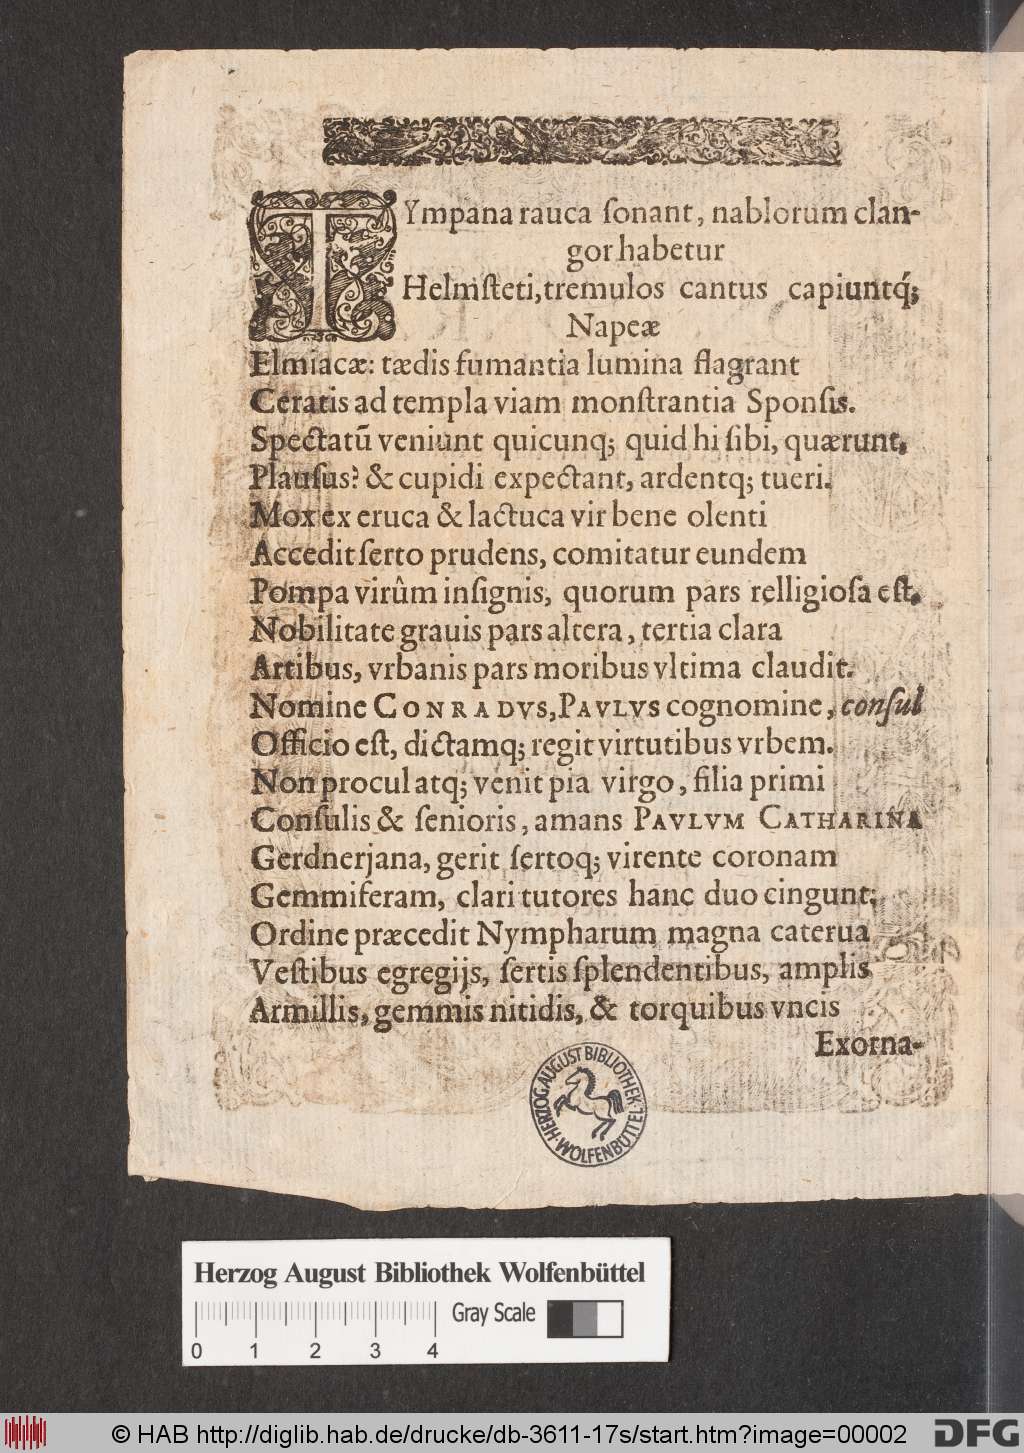 TYmpana rauca ſonant, nablorum clan-
gor habetur
Helmſteti, tremulos cantus capiuntq́;
Napeæ
Elmiacæ: tædis fumantia lumina flagrant
Ceratis ad templa viam monſtrantia Sponſis.
Spectatū veniunt quicunq; quid hi ſibi, quærunt,
Plauſus? & cupidi expectant, ardentq; tueri.
Mox ex eruca & lactuca vir bene olenti
Accedit ſerto prudens, comitatur eundem
Pompa virûm inſignis, quorum pars relligioſa eſt,
Nobilitate grauis pars altera, tertia clara
Artibus, vrbanis pars moribus vltima claudit.
Nomine CONRADVS, PAVLVS cognomine, conſul
Officio eſt, dictamq; regit virtutibus vrbem.
Non procul atq; venit pia virgo, filia primi
Conſulis & ſenioris, amans PAVLVM CATHARINA
Gerdnerjana, gerit ſertoq; virente coronam
Gemmiferam, clari tutores hanc duo cingunt:
Ordine præcedit Nympharum magna caterua
Veſtibus egregijs, ſertis ſplendentibus, amplis
Armillis, gemmis nitidis, & torquibus vncis
Exorna-
HERZOG AUGUST BIBLIOTHEK
WOLFENBÜTTEL
Herzog August Bibliothek Wolfenbüttel
Gray Scale
0 1 2 3 4
© HAB http://diglib.hab.de/drucke/db-3611-17s/start.htm?image=00002
DFG